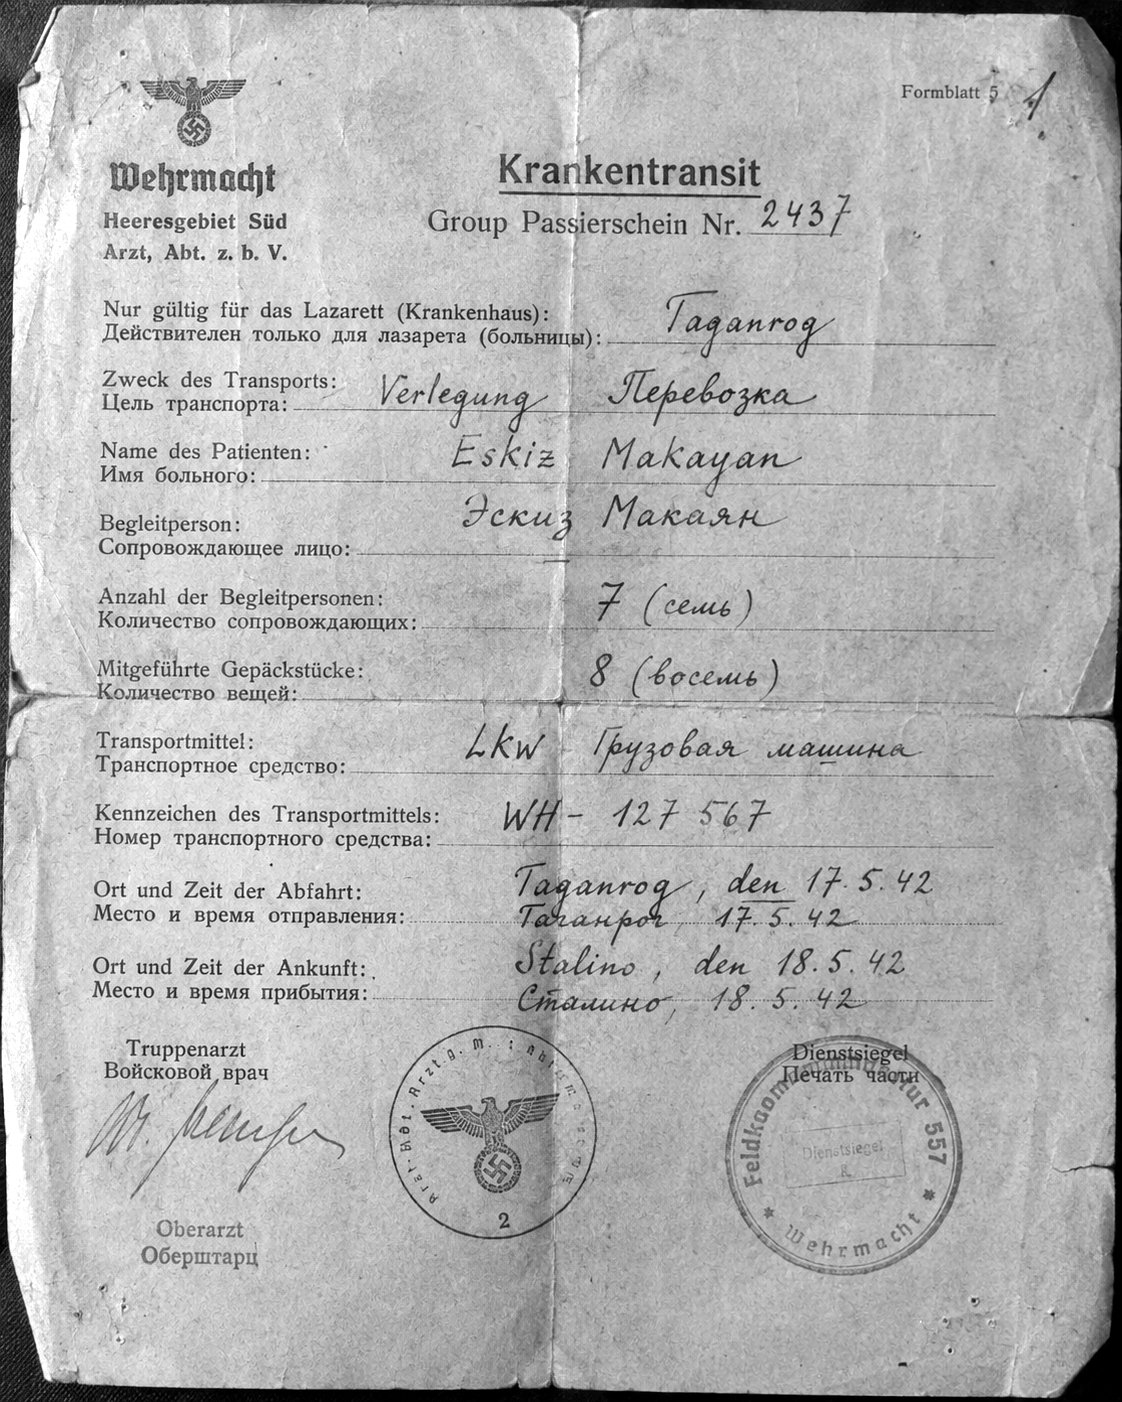 Formblatt 5
1
Wehrmacht
Heeresgebiet Süd
Arzt, Abt. z. b. V.
Krankentransit
Group Passierschein Nr. 2437
Nur gültig für das Lazarett (Krankenhaus):
Действителен только для лазарета (больницы): Taganrog
Zweck des Transports:
Цель транспорта: Verlegung Перевозка
Name des Patienten: Eskiz Makayan
Имя больного:
Begleitperson: Эскиз Макаян
Сопровождающее лицо:
Anzahl der Begleitpersonen:
Количество сопровождающих: 7 (семь)
Mitgeführte Gepäckstücke:
Количество вещей: 8 (восемь)
Transportmittel:
Транспортное средство: LKW Грузовая машина
Kennzeichen des Transportmittels:
Номер транспортного средства: WH - 127 567
Ort und Zeit der Abfahrt: Taganrog, den 17.5.42
Место и время отправления: Таганрог, 17.5.42
Ort und Zeit der Ankunft: Stalino, den 18.5.42
Место и время прибытия: Сталино, 18.5.42
Truppenarzt
Войсковой врач
Dienstsiegel
Печать части
2
557
Dienstsiegel
Wehrmacht
Oberarzt
Оберштарц